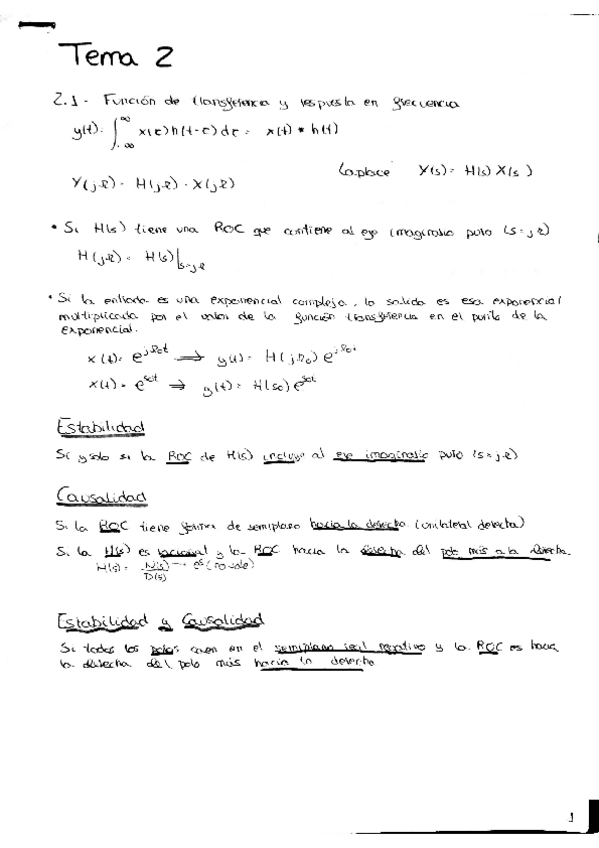 Tema 2
2.1- Función de transferencia y respuesta en frecuencia
y(t) = ∫_{-∞}^{∞} x(τ)h(t-τ)dτ = x(t) * h(t)
Y(jΩ) = H(jΩ) · X(jΩ) Laplace Y(s) = H(s) X(s)
• Si H(s) tiene una ROC que contiene al eje imaginario puro (s=jΩ)
H(jΩ) = H(s)|_{s=jΩ}
• Si la entrada es una exponencial compleja, la salida es esa exponencial
multiplicada por el valor de la función transferencia en el punto de la
exponencial.
x(t) = e^{jΩ₀t} ⟹ y(t) = H(jΩ₀) e^{jΩ₀t}
x(t) = e^{s₀t} ⟹ y(t) = H(s₀) e^{s₀t}
Estabilidad
Si y solo si la ROC de H(s) incluye al eje imaginario puro (s=jΩ)
Causalidad
Si la ROC tiene forma de semiplano hacia la derecha (unilateral derecha)
Si la H(s) es racional y la ROC hacia la derecha del polo más a la derecha.
H(s) = N(s)/D(s) → e^s (no vale)
Estabilidad y Causalidad
Si todos los polos caen en el semiplano real negativo y la ROC es hacia
la derecha del polo más hacia la derecha
1